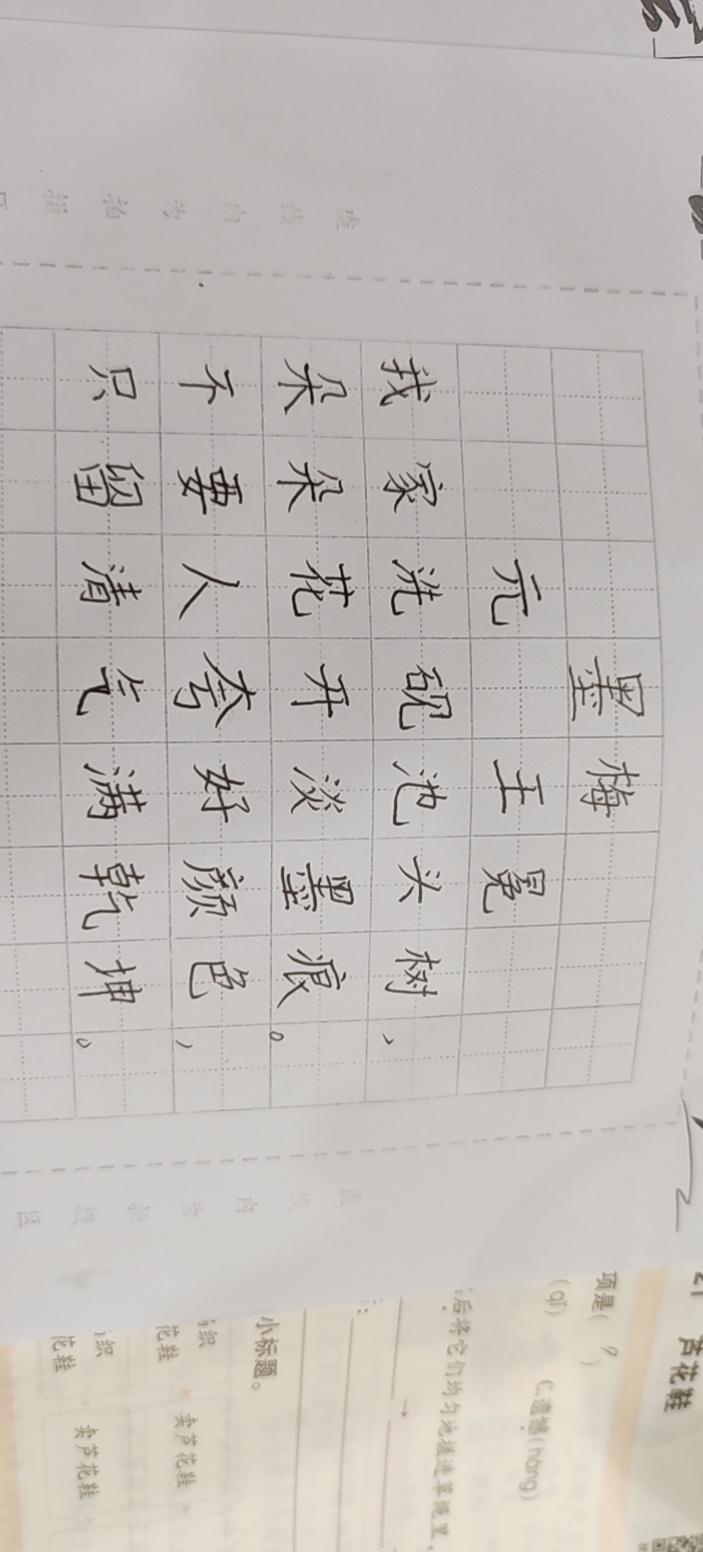 墨梅
元 王冕
我家洗砚池头树，
朵朵花开淡墨痕。
不要人夸好颜色，
只留清气满乾坤。
虚线内为拍摄区
虚线内为拍摄区
21 芦花鞋
项是( )
C.遗憾(hàng)
后将它们均匀地搓进草绳里，
小标题。
织
花鞋
卖芦花鞋
织
花鞋
卖芦花鞋